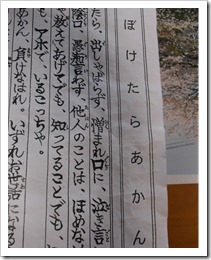 ぼけたらあかん
たら、出しゃばらず、憎まれ口に、泣き言
陰口、愚痴言わず、他人のことは、ほめな
ゃ教えてあげてでも、知ってることでも、
も、アホでいるこっちゃ。
あかん、負けなはれ。いずれお世話になる